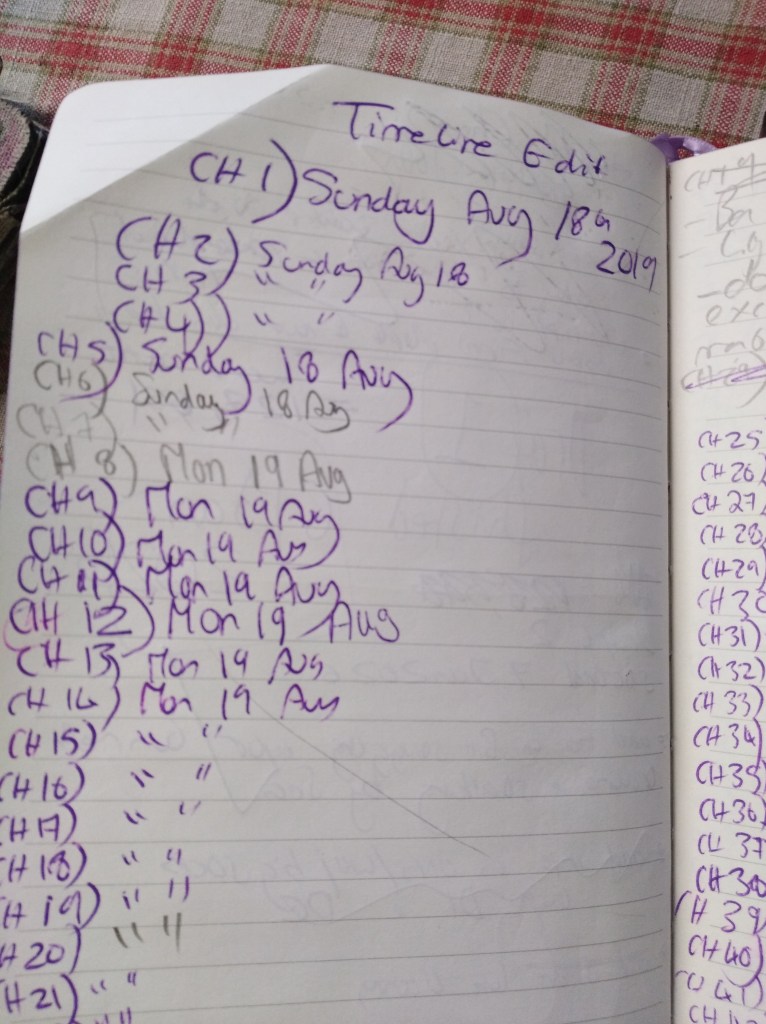 Timeline Edit
CH 1) Sunday Aug 18th
2019
CH 2) Sunday Aug 18
CH 3) " "
CH 4) " "
CH 5) Sunday 18 Aug
CH 6) Sunday 18 Aug
CH 7) " "
CH 8) Mon 19 Aug
CH 9) Mon 19 Aug
CH 10) Mon 19 Aug
CH 11) Mon 19 Aug
CH 12) Mon 19 Aug
CH 13) Mon 19 Aug
CH 14) Mon 19 Aug
CH 15) " "
CH 16) " "
CH 17) " "
CH 18) " "
CH 19) " "
CH 20) " "
CH 21) " "
" "
CH 25
CH 26)
CH 27)
CH 28
CH 29)
CH 30
CH 31)
CH 32)
CH 33)
CH 34)
CH 35)
CH 36)
CH 37
CH 38
CH 39)
CH 40)
CH 41)